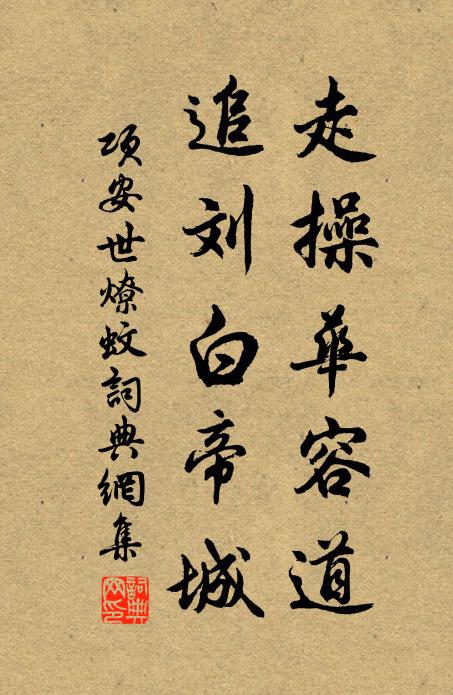 走操華容道
追刘白帝城
項安世燎蚊詞典網集
詞典網印